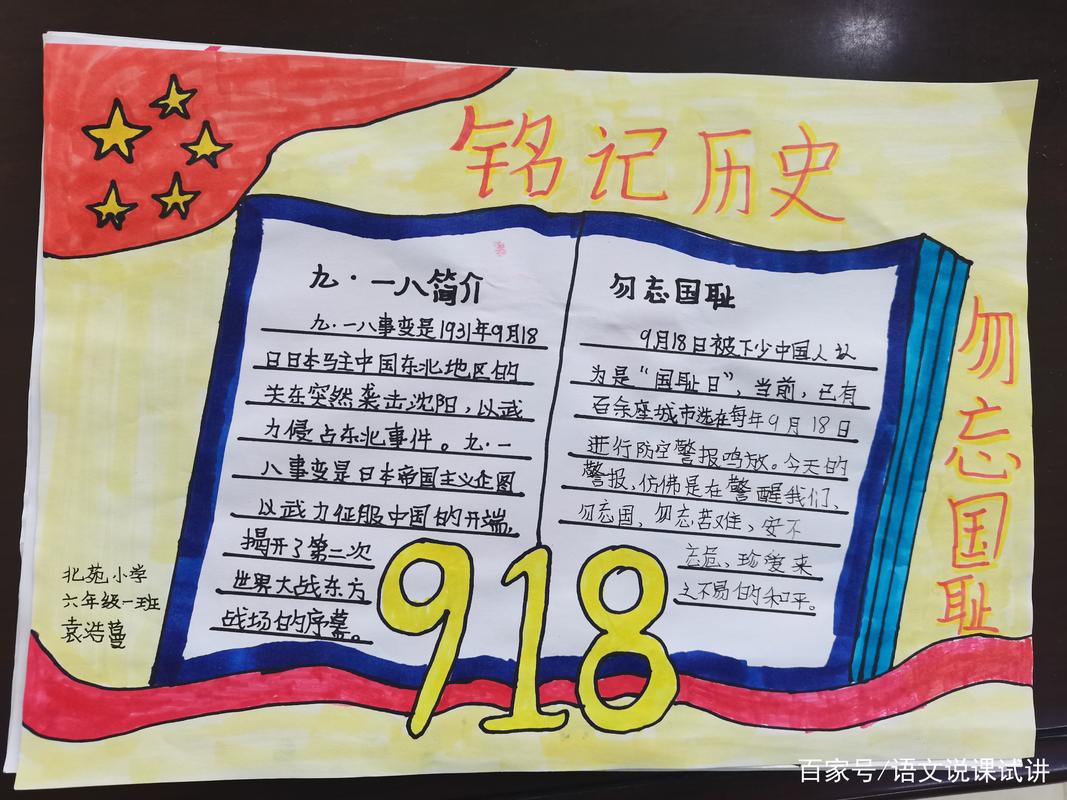 铭记历史
勿忘国耻
九·一八简介
九·一八事变是1931年9月18
日日本马主中国东北地区的
关东突然袭击沈阳,以武
力侵占东北事件。九·一
八事变是日本帝国主义企图
以武力征服中国的开端,
揭开了第二次
世界大战东方
战场的序幕。
勿忘国耻
9月18日被不少中国人认
为是“国耻日”,当前,已有
百余座城市选在每年9月18日
进行防空警报鸣放。今天的
警报,仿佛是在警醒我们、
勿忘国、勿忘苦难、安不
忘危、珍爱来
之不易的和平。
918
北苑小学
六年级一班
袁浩蔓
百家号/语文说课试讲